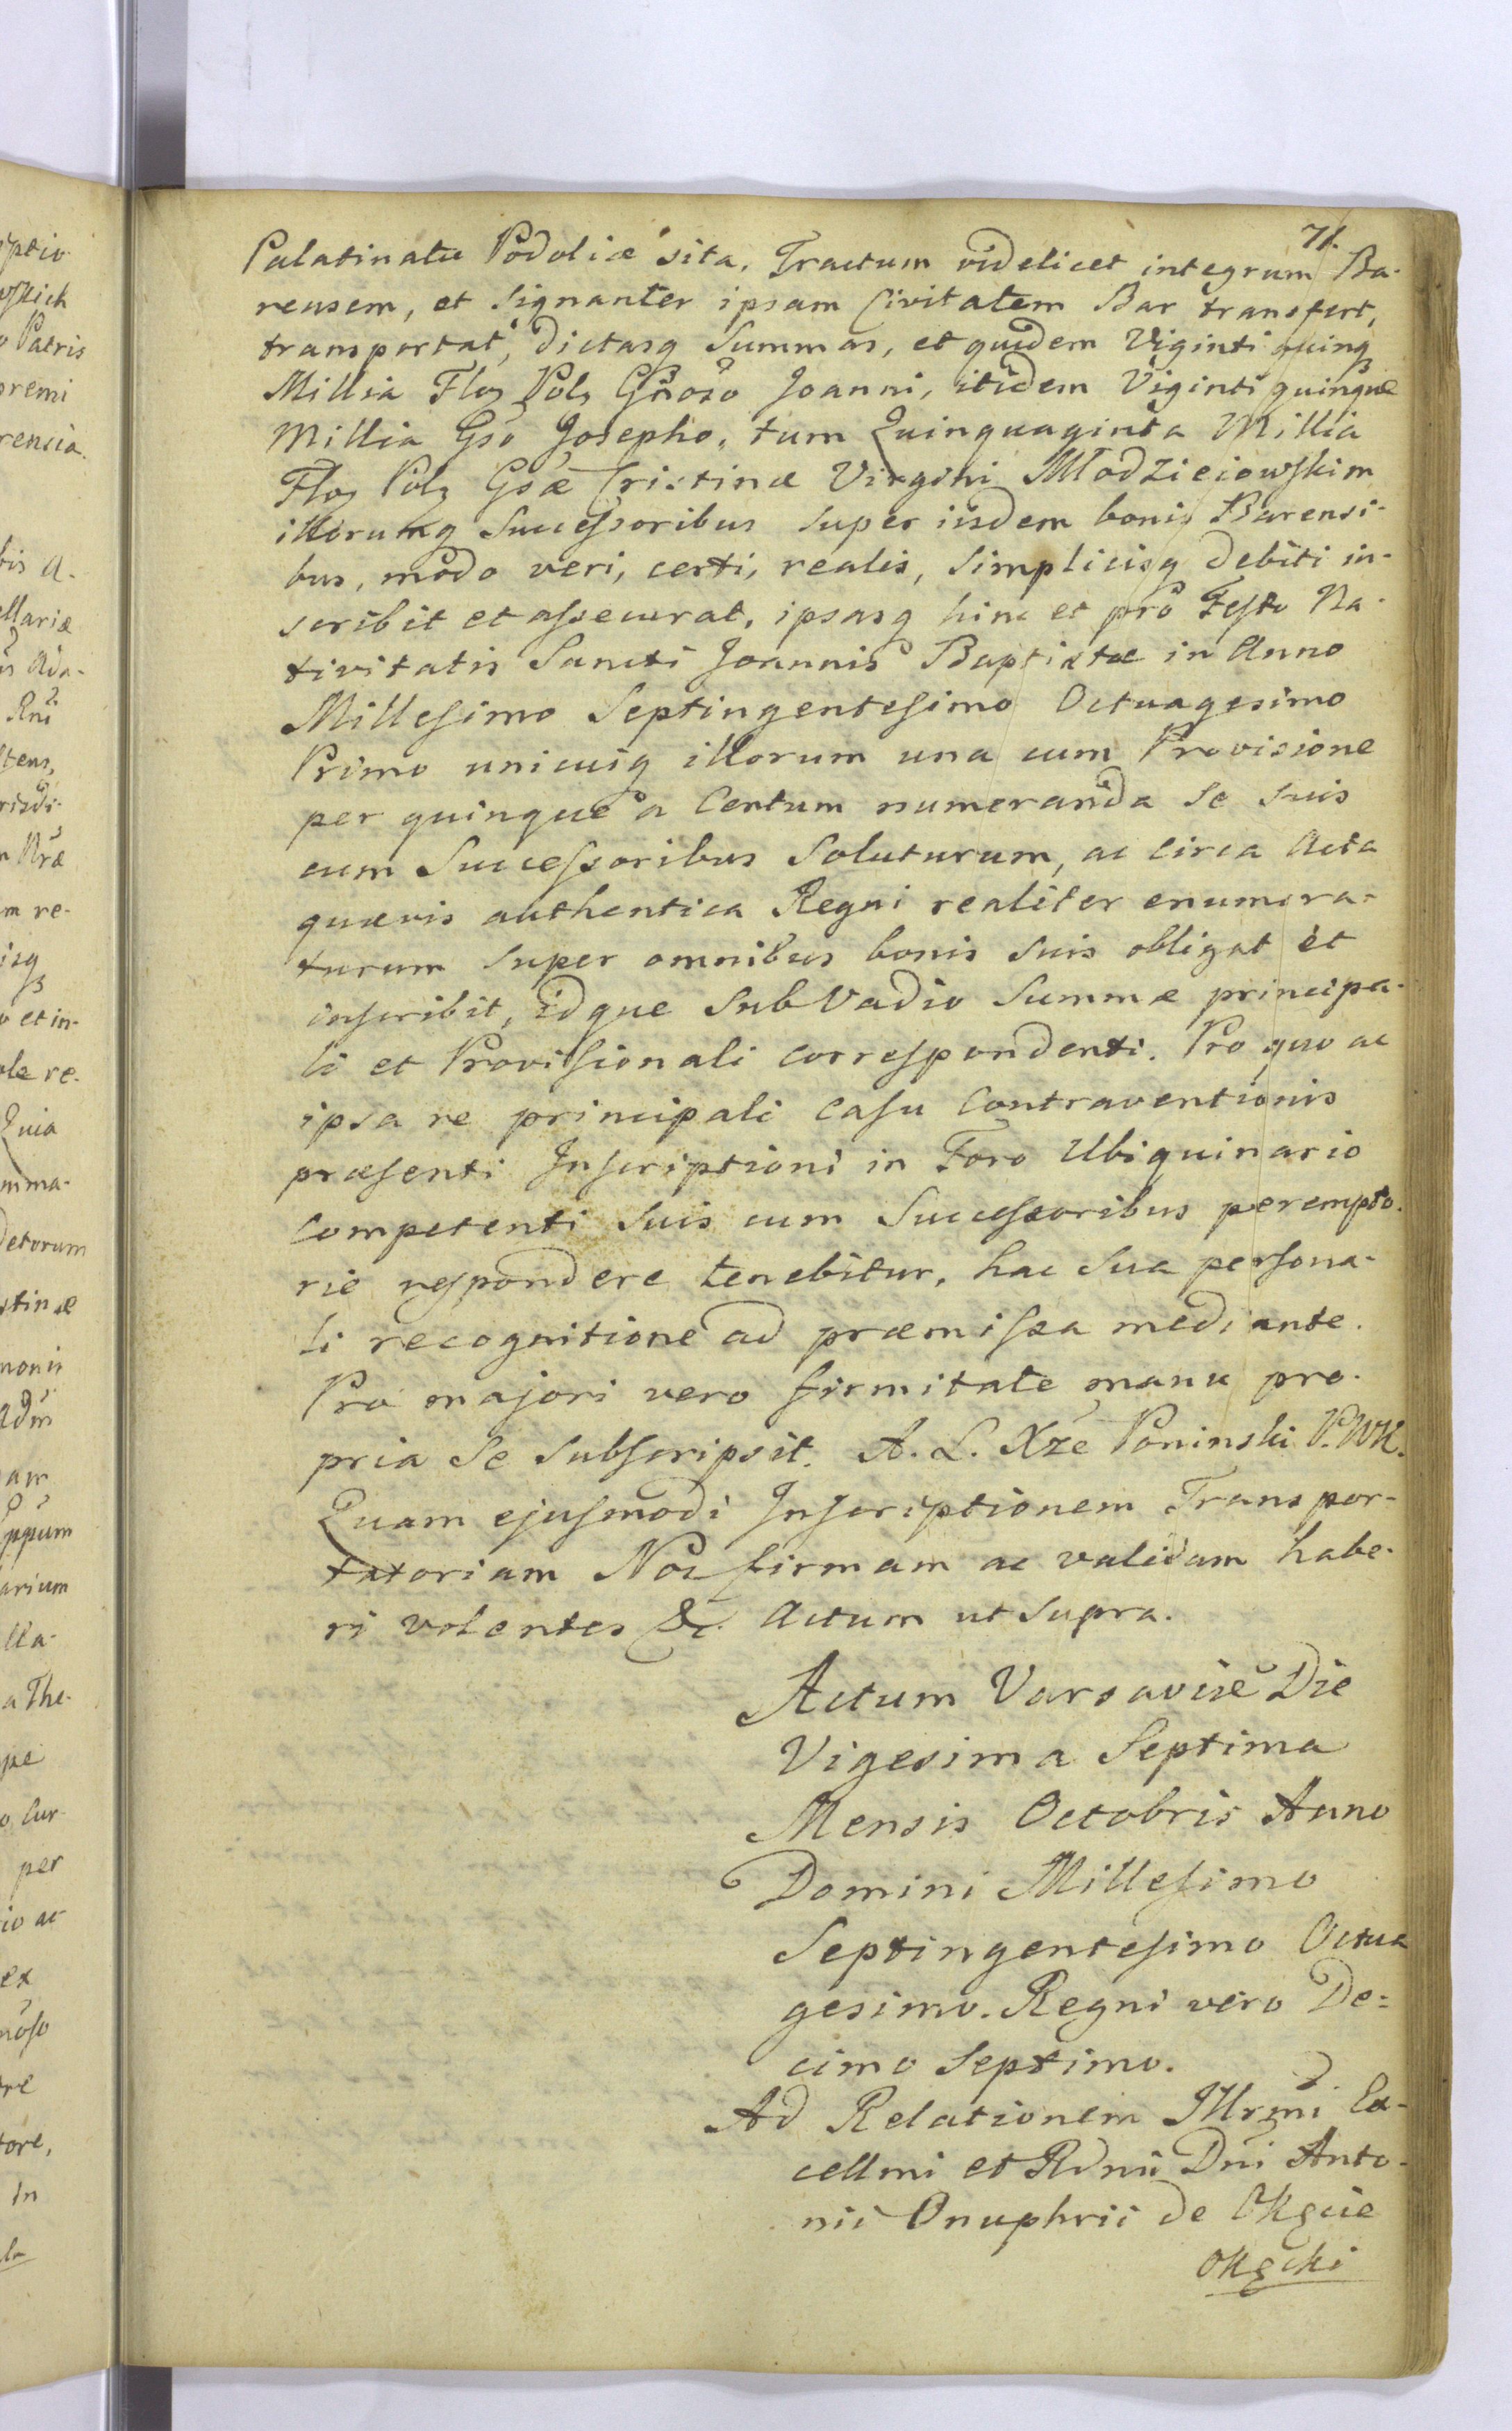 71.
Palatinatu Podoliæ sita, Tractum videlicet integrum Ba-
rensem, et signanter ipsam Civitatem Bar transfert,
transportat, dictasq Summas, et quidem Viginti quinq
Millia Floz Polz Gñoso Joanni, itidem Viginti quinque
Millia Gso Josepho, tum Quinquaginta Millia
Floz Polz Gsæ Cristinæ Virgini Młodzieiowskim
illorumq Successoribus super iisdem bonis Barensi-
bus, modo veri, certi, realis, simplicisq debiti in-
scribit et assecurat, ipsasq hinc et pro Festo Na-
tivitatis Sancti Joannis Baptistæ in Anno
Millesimo Septingentesimo Octuagesimo
Primo unicuiq illorum una cum Provisione
per quinque a Centum numeranda se suis
cum Successoribus soluturum, ac circa Acta
quævis authentica Regni realiter enumera-
turum super omnibus bonis suis obligat et
inscribit, idque sub Vadio Summæ principa-
li et Provisionali correspondenti. Pro quo ac
ipsa re principali casu Contraventionis
præsenti Inscriptioni in Foro Ubiquinario
competenti suis cum Successoribus perempto-
rie respondere tenebitur, hac sua persona-
li recognitione ad præmissa mediante.
Pro majori vero firmitate manu pro-
pria se subscripsit. A. L. Xże Poninski P.WK.
Quam ejusmodi Inscriptionem Transpor-
tatoriam Nos firmam ac validam habe-
ri volentes &c. Actum ut supra.
Actum Varsaviæ Die
Vigesima Septima
Mensis Octobris Anno
Domini Millesimo
Septingentesimo Octua
gesimo. Regni vero De-
cimo Septimo.
Ad Relationem Illrmi Ex-
cellmi et Rdnii Dni Anto-
nii Onuphrii de Okęcie
Okęcki